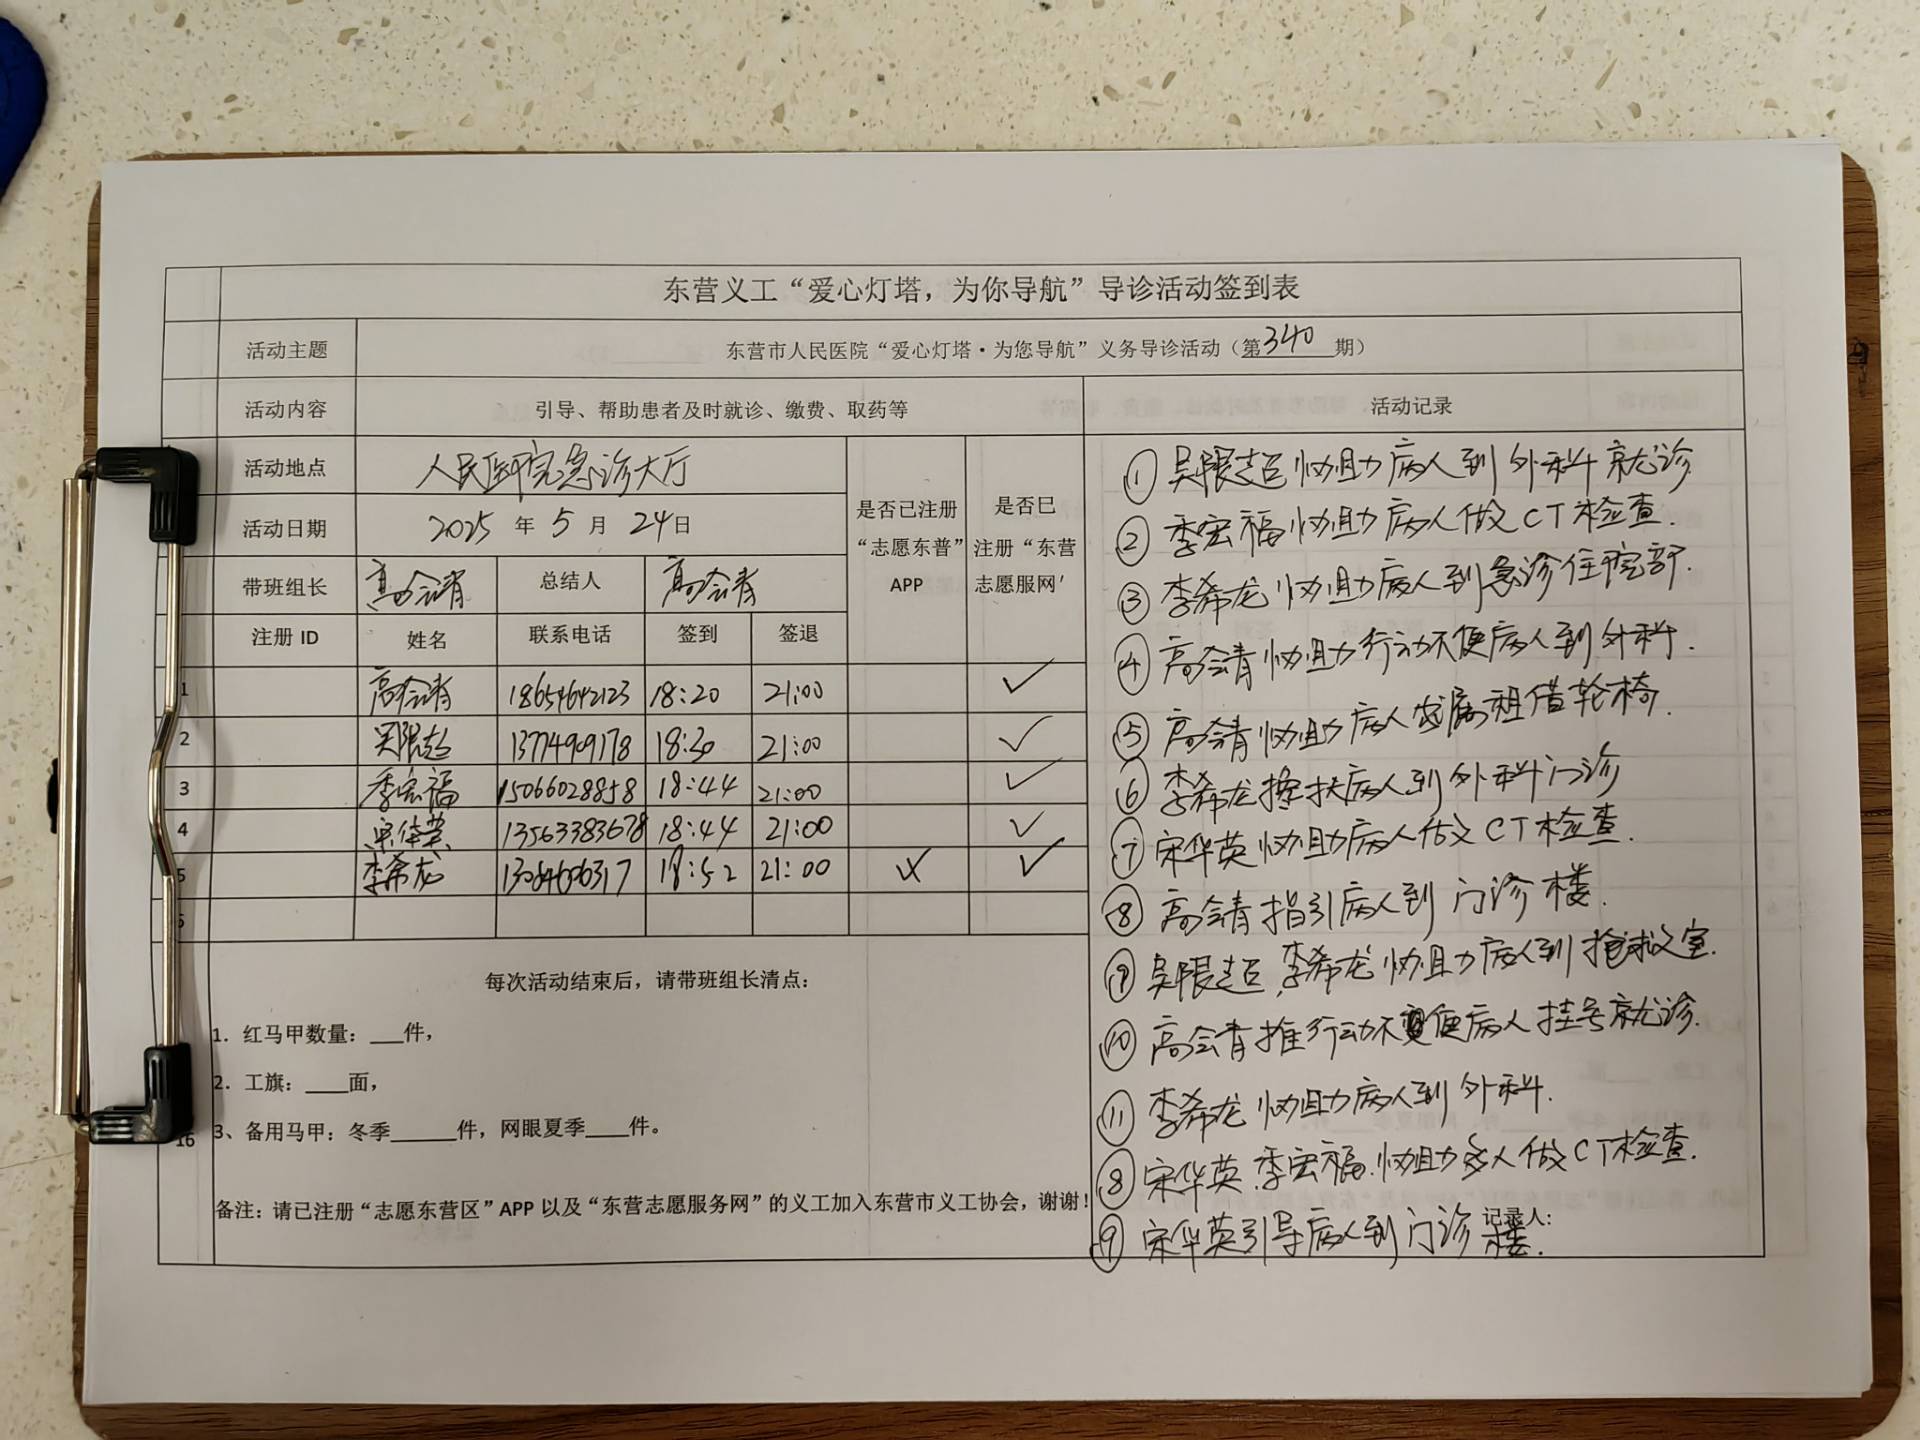 东营义工“爱心灯塔，为你导航”导诊活动签到表
活动主题 东营市人民医院“爱心灯塔·为您导航”义务导诊活动（第340期）
活动内容 引导、帮助患者及时就诊、缴费、取药等 活动记录
活动地点 人民医院急诊大厅
活动日期 2025年5月24日
是否已注册“志愿东普”APP
是否巳注册“东营志愿服网'
带班组长 高会青 总结人 高会青
注册 ID 姓名 联系电话 签到 签退
1 高会青 18654642123 18:20 21:00 ✓
2 吴限超 13774909178 18:30 21:00 ✓
3 季宏福 15066028858 18:44 21:00 ✓
4 宋华英 13563383678 18:44 21:00 ✓
5 李希龙 18:52 21:00 ✓
每次活动结束后，请带班组长清点：
1. 红马甲数量：___件，
2. 工旗：____面，
3、备用马甲：冬季______件，网眼夏季____件。
16
备注：请已注册“志愿东营区”APP 以及“东营志愿服务网”的义工加入东营市义工协会，谢谢！
① 吴限超协助病人到外科就诊
② 季宏福协助病人做CT检查.
③ 李希龙协助病人到急诊住院部.
④ 高会青协助行动不便病人到外科.
⑤ 高会青协助病人家属租借轮椅.
⑥ 李希龙搀扶病人到外科门诊
⑦ 宋华英协助病人做CT检查.
⑧ 高会青指引病人到门诊楼.
⑨ 吴限超、李希龙协助病人到抢救室.
⑩ 高会青推行动不便病人挂号就诊.
⑪ 李希龙协助病人到外科.
⑧ 宋华英、季宏福.协助多人做CT检查.
⑨ 宋华英引导病人到门诊楼.
记录人: